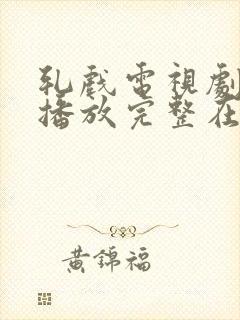 乳戲電視劇
播放完整在
黃錦福